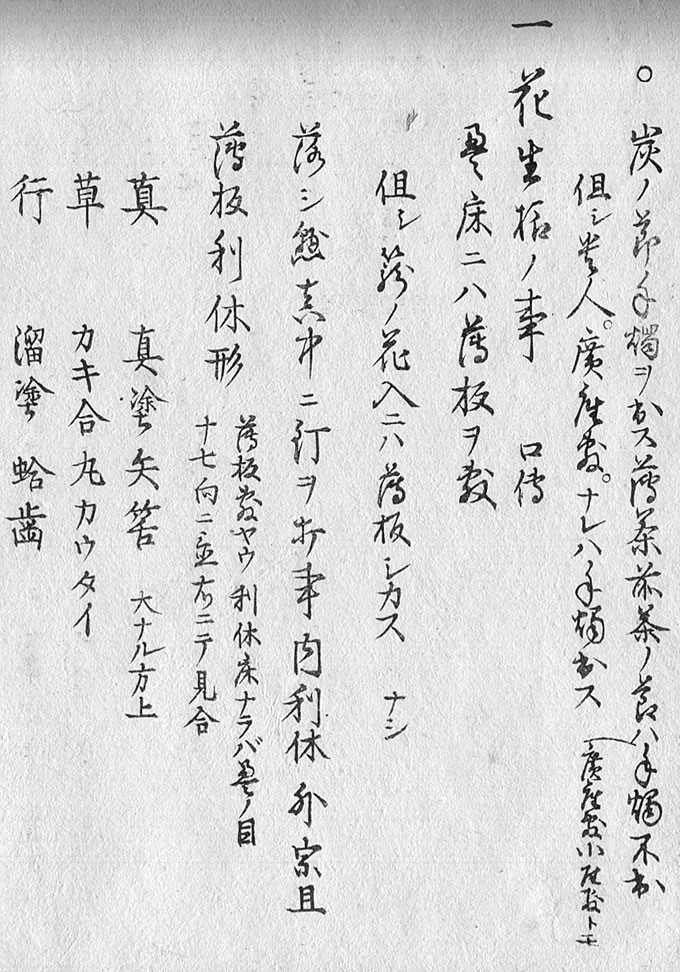 ○炭ノ節手燭ヲ出ス薄茶前茶ノ節ハ手燭不出
但シ貴人。廣座敷。ナレハ手燭出ス 廣座敷小座敷トモ
一花生拵ノ事 口傳
畳床ニハ薄板ヲ敷
但シ籠ノ花入ニハ薄板シカス ナシ
落シ懸真中ニ釘ヲ打事内利休外宗旦
薄板利休形
薄板敷ヤウ利休床ナラバ畳ノ目
十七向ニ並左右ニテ見合
真 真塗矢筈 大ナル方上
草 カキ合丸カウタイ
行 溜塗 蛤歯